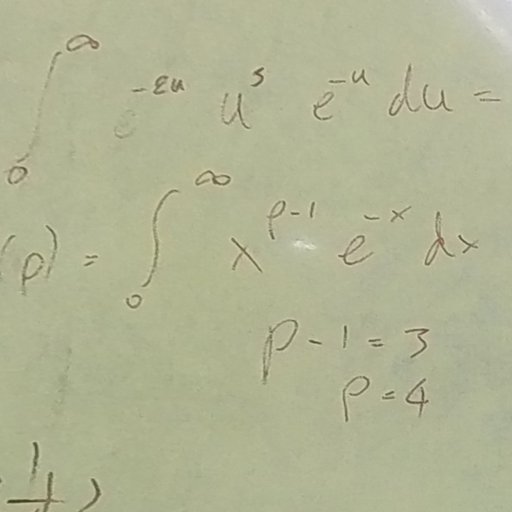 ∫₀^∞ e^{-εu} u^s e^{-u} du =
(p) = ∫₀^∞ x^{p-1} e^{-x} dx
p - 1 = 3
p = 4